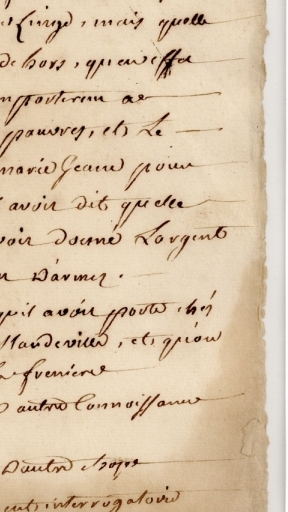 Linge, mais quelle
dehors, quen effet
emporterent de
pauvres, et Le
marie Jeane pour
avoir dit quelle
voir donné Largent
Darmes.
quil avoit porté chés
Mandeville, et qu'on
La freniere
autre Connoissance
D'autre chose
interrogatoire